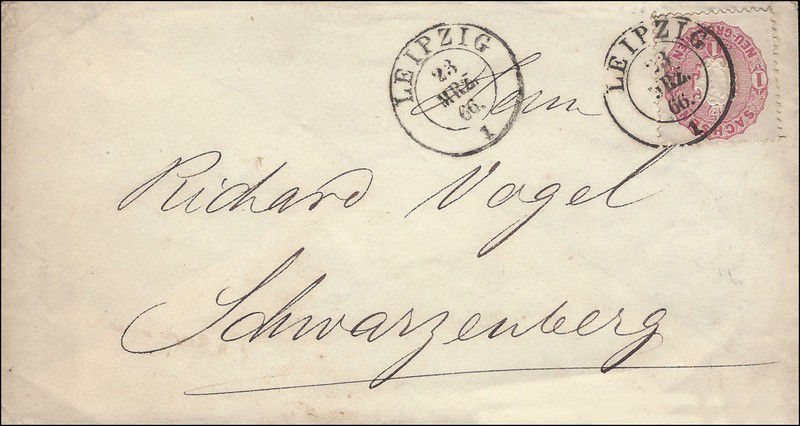 LEIPZIG
23
MRZ.
66.
1
LEIPZIG
23
MRZ.
66.
1
1
NEU-GR
SACHS
EN
1
Herrn
Richard Vogel
Schwarzenberg